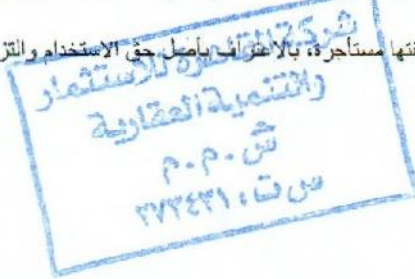 فتها مستأجرة، بالاعتراف بأصل حق الاستخدام والتز
شركة القاهرة للاستثمار
والتنمية العقارية
ش.م.م
س ت: ٢٧٣٤٣١